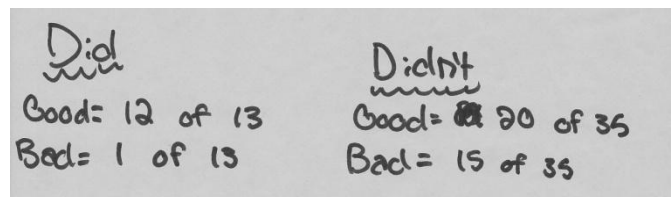 Did
Good= 12 of 13
Bad= 1 of 13
Didn't
Good= 20 of 35
Bad= 15 of 35